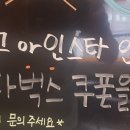 고 아인스타
타벅스 쿠폰을
문의 주세요*